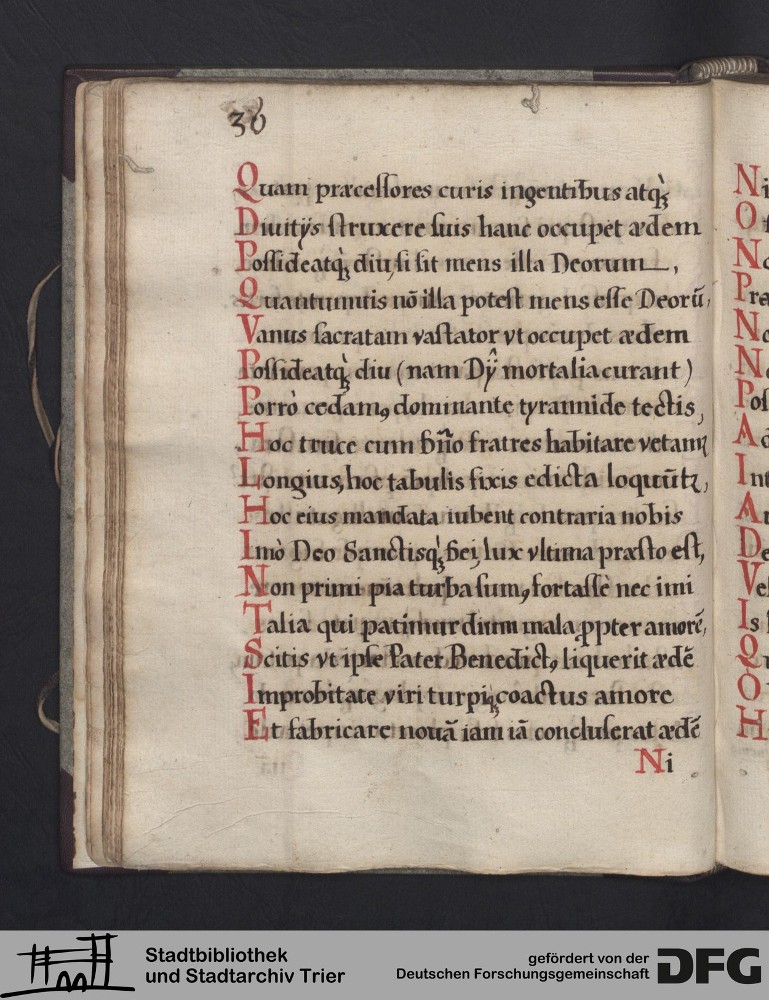 36
Quam præcessores curis ingentibus atq̀ꝫ
Diuitÿs struxere suis hanc occupet ædem
Possideatq̀ꝫ diu, si sit mens illa Deorum,
Quantumuis nō illa potest mens esse Deorū,
Vanus sacratam vastator vt occupet ædem
Possideatq̀ꝫ diu (nam Dÿ̂ mortalia curant)
Porrò cedamꝰ, dominante tyrannide tectis,
Hoc truce cum Bn̄o fratres habitare vetamꝛ
Longius, hoc tabulis fixis edicta loquūtꝛ,
Hoc eius mandata iubent contraria nobis
Imò Deo Sanctisq̀ꝫ Bei, lux vltima præsto est,
Non primi pia turba sumꝰ, fortassè nec imi
Talia qui patimur dirum mala ꝓpter amorē,
Scitis vt ipse Pater Benedictꝰ, liquerit ædē
Improbitate viri turpiqꝫ coactus amore
Et fabricare nouā iam iā concluserat ædē
Ni
Ni
O
N
Præ
N
N
Pos
A
Int
A
De
Ve
Is
Q
O
H
Stadtbibliothek
und Stadtarchiv Trier
gefördert von der
Deutschen Forschungsgemeinschaft
DFG